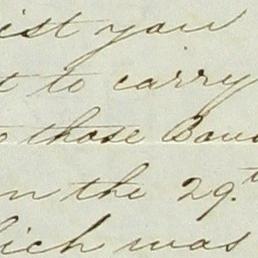 ist you
t to carry
those Bou
n the 29.th
hich was